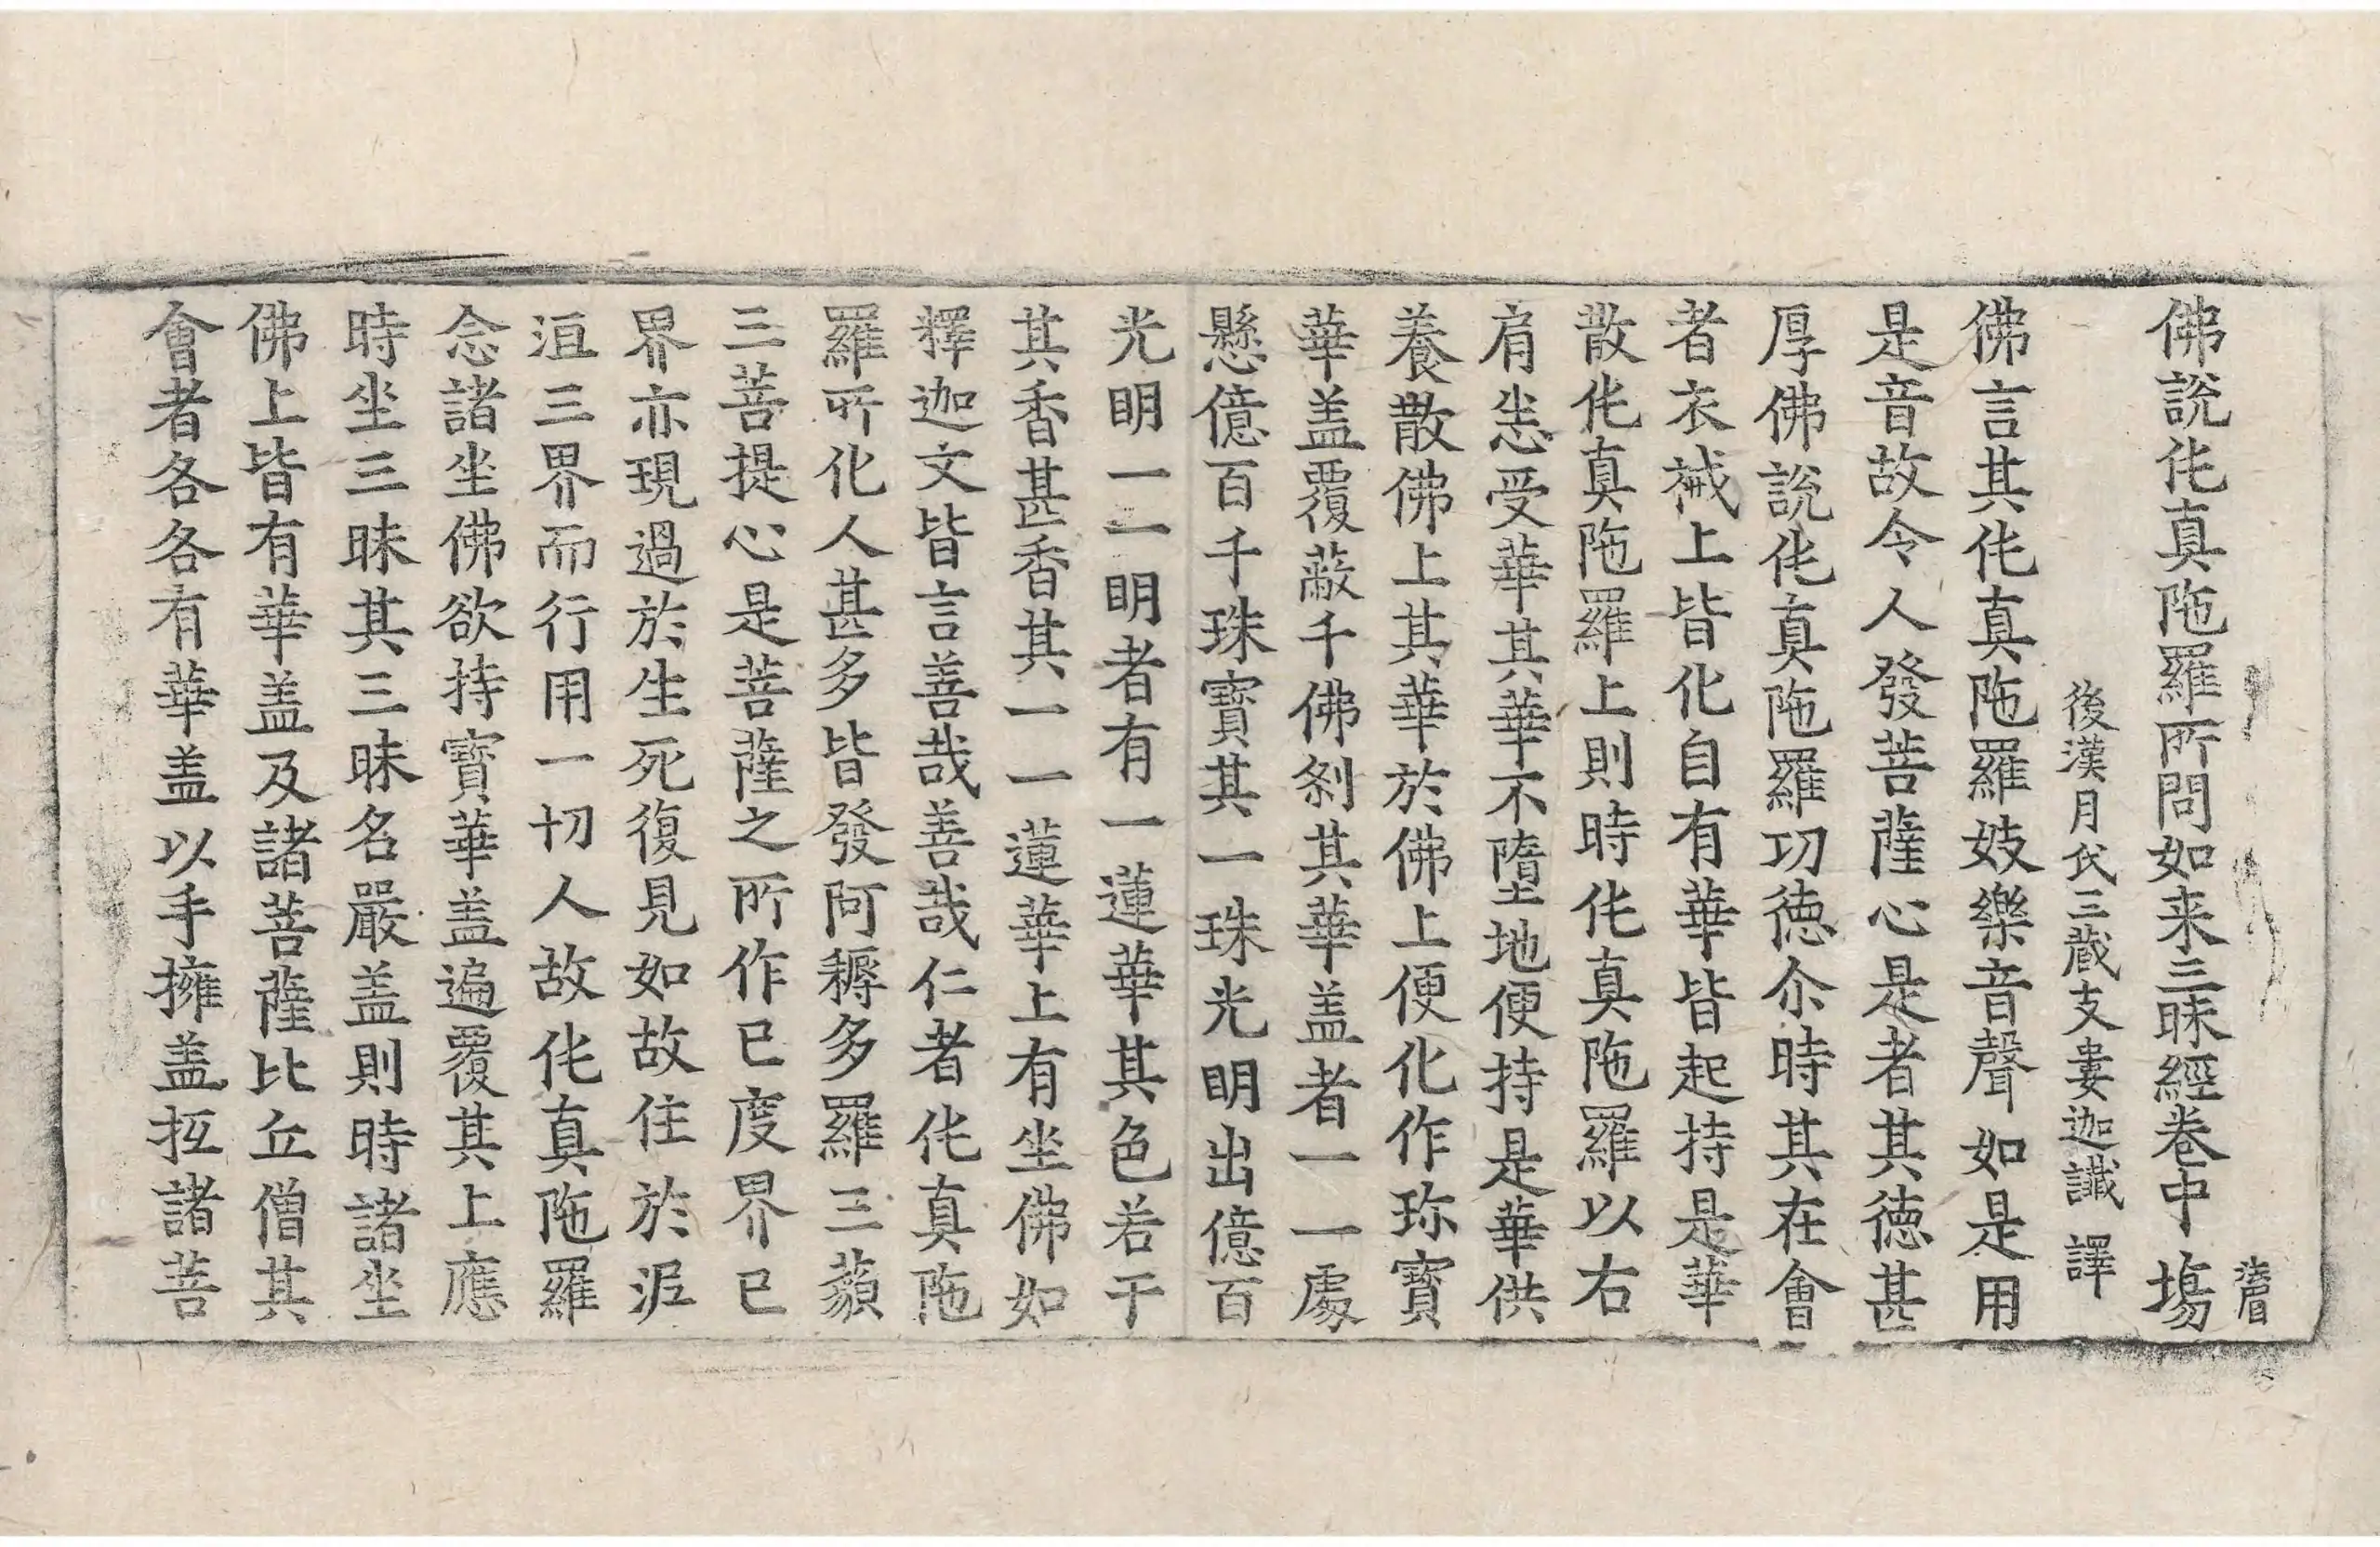 佛說伅真陁羅所問如来三昧經卷中 塲
後漢月氏三藏支婁迦讖 譯
佛言其伅真陁羅妓樂音聲如是用
是音故令人發菩薩心是者其德甚
厚佛說伅真陁羅功德尒時其在會
者衣裓上皆化自有華皆起持是華
散伅真陁羅上則時伅真陁羅以右
肩悉受華其華不墮地便持是華供
養散佛上其華於佛上便化作珎寶
華盖覆蔽千佛刹其華盖者一一處
懸億百千珠寶其一珠光明出億百
光明一一明者有一蓮華其色若干
其香甚香其一一蓮華上有坐佛如
釋迦文皆言善哉善哉仁者伅真陁
羅所化人甚多皆發阿耨多羅三藐
三菩提心是菩薩之所作已度界已
界亦現過於生死復見如故住於泥
洹三界而行用一切人故伅真陁羅
念諸坐佛欲持寶華盖遍覆其上應
時坐三昧其三昧名嚴盖則時諸坐
佛上皆有華盖及諸菩薩比丘僧其
會者各各有華盖以手擁盖扺諸菩